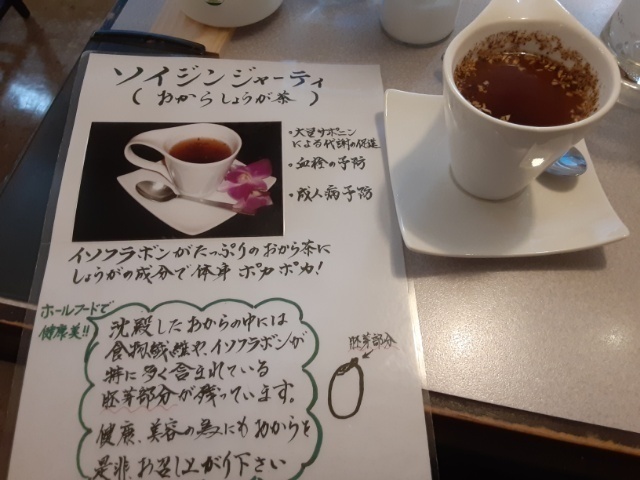 ソイジンジャーティ
(おからしょうが茶)
・大豆サポニン
による代謝の促進
・血栓の予防
・成人病予防
イソフラボンがたっぷりのおから茶に
しょうがの成分で体身ポカポカ!
ホールフードで
健康美!!
沈殿したおからの中には
食物繊維や、イソフラボンが
特に多く含まれている
胚芽部分が残っています。
健康、美容の為にもおからを
是非、お召し上がり下さい
胚芽部分